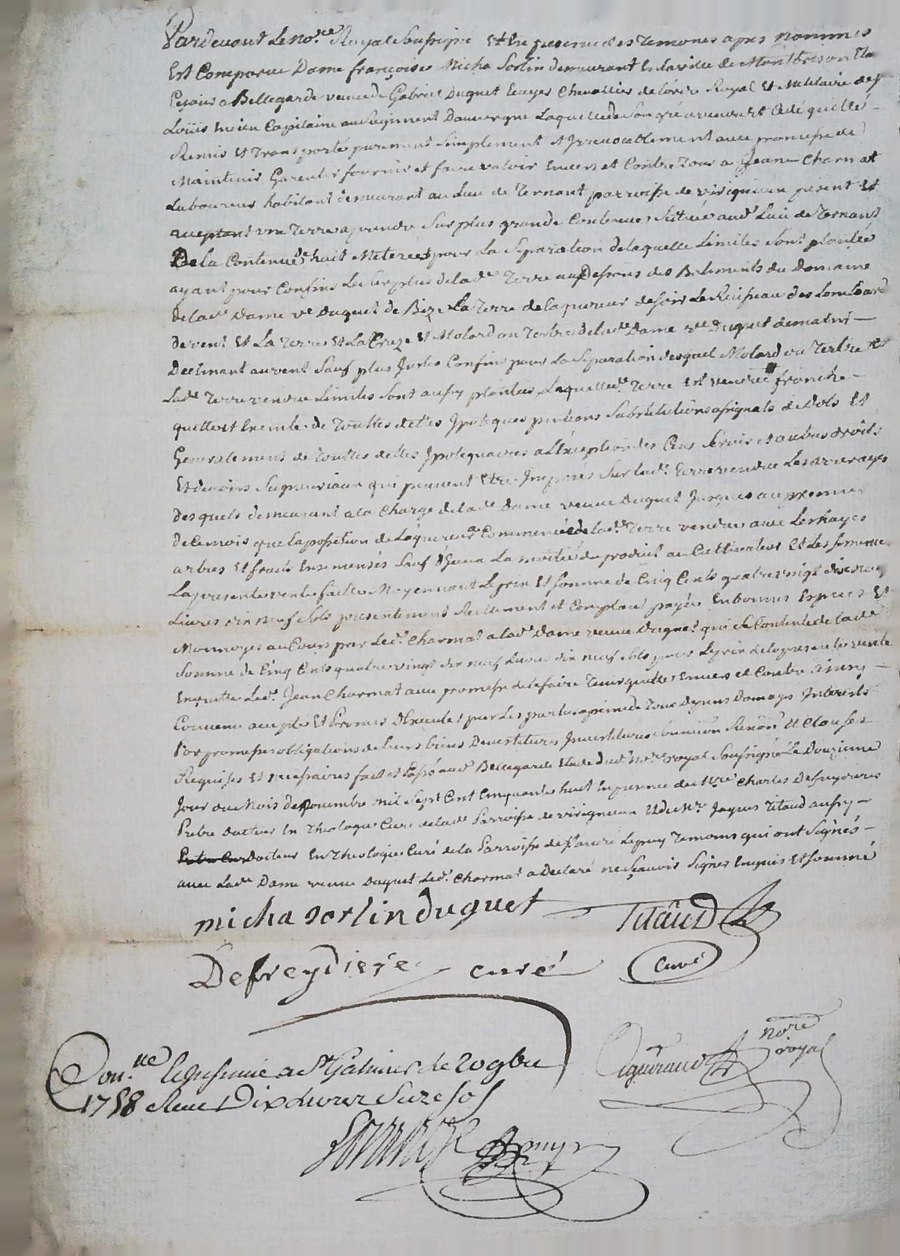 Pardevant Le no.re Royal Soussigné Et En presence des Temoins apres nommes
Est Comparue Dame françoise Micha Sorlin demeurant En la ville de Montbrison Et a
a Bellegarde veuve de Gabriel Duquet Ecuyer Chevallier de l'ordre Royal Et Militaire de St
Loüis Encien Capitaine au Regiment Dauvergne Laquelle de Son gré a vendu Et Cedé quitté
Remis Et Transporté purement Simplement Et Irrevocablement avec promesse de
Maintenir Garentir fournir et faire valoir Envers et Contre Tous a Jean Charmat
Laboureur habitant demeurant au Lieu de Ternant parroisse de virignieu present Et
acceptant une Terre a prendre Sur plus grande Contenue Scituée aud. Lieu de Ternant
De la Contenue huit Meterées pour La Separation de laquelle Limites Sont plantée
ayant pour Confins Le Surplus de lad.e Terre au Dessous des Batiments du Domaine
de lad.e Dame v.e Duguet de Bize La Terre de la de Soir Le Ruisseau des
de vent Et La Terre Et La Et Molard ou Tertre de lad.e Dame v.e Duguet de matin
Declinant au vent Sauf plus Justes Confins pour La Separation desquel Molard ou Tertre Et
Lad.e Terre vendue Limites Sont aussy plantées Laquelle Terre Est vendue franche
quitte et Exempte de Touttes dettes Ipoteques pentions Substitutions de Dots Et
Generalement de Touttes dettes Ipotequaires a L'exception des Cens Servis et autres droits
Et devoirs Seigneuriaux qui peuvent Etre Imposés Sur lad.e Terre vendue Les arrerages
desquels demeurant a la Charge de lad.e Dame veuve Duguet Jusques au premier
de Ce mois que la possetion de Commencé de lad.e Terre vendue avec Les hayes
arbres Et fruits Ensemencés Sauf La moitié du produit au Cultivateur Et Les Semences
La presente vente faitte Moyennant Le prix Et Somme de Cinq Cents quatre vingt dix neuf
Livres dix neuf Sols presentement Reellement et Comptant payée En bonnes Especes Et
Monnoye au Cours par Led. Charmat a lad.e Dame veuve Duguet qui Se Contente de lad.e
Somme de Cinq Cents quatre vingt dix neuf Livres dix neuf Sols pour Le prix de la presente vente
En quitte Led. Jean Charmat avec promesse de le faire Tenir quitte Envers et Contre
Convenu accepté Et Promis Executer par Les parties a peine de Tous Depens Domages Interets
Par promesses obligations de leurs biens Devestiture Investiture Renon. Et Clauses
Requises Et necessaires fait et Passé aud. Bellegarde no.re royal Soussigné Le Douzieme
Jour du Mois de Novembre Mil Sept Cent Cinquante huit En presence de M.re Charles Defreydiere
Prêtre Docteur En Theologie Curé de lad.e Parroisse de virignieu Et de M.re Jaques Titaud aussy
Docteur En Theologie Curé de la Parroisse de St andré Lepuy Temoins qui ont Signés
avec Lad.e Dame veuve Duguet Led. Charmat a Declaré ne Sçavoir Signer Enquis Et Sommé
micha sorlin duguet Titaud
Defreydiere curé Curé
no.re royal
Con.lle a St Galmier
1758 Reçu Dix livres Seze sols